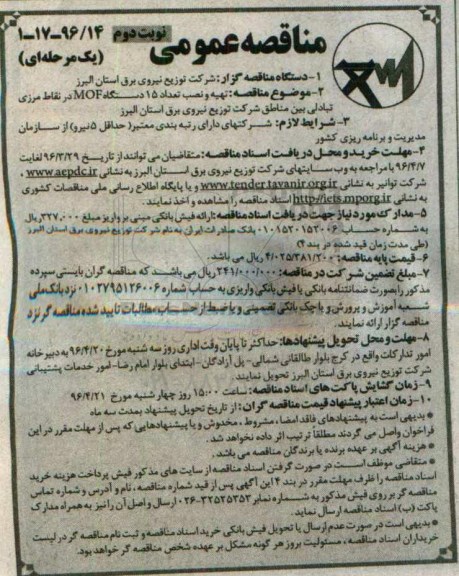 مناقصه عمومی
نوبت دوم
۹۶/۱۴-۱۷-۱
(یک مرحله‌ای)
۱-دستگاه مناقصه گزار: شرکت توزیع نیروی برق استان البرز
۲-موضوع مناقصه: تهیه و نصب تعداد ۱۵ دستگاه MOF در نقاط مرزی
تبادلی بین مناطق شرکت توزیع نیروی برق استان البرز
۳-شرایط لازم: شرکتهای دارای رتبه بندی معتبر (حداقل ۵ نیرو) از سازمان
مدیریت و برنامه ریزی کشور
۴-مهلت خرید و محل دریافت اسناد مناقصه: متقاضیان می توانند از تاریخ ۹۶/۳/۲۹ لغایت
۹۶/۴/۷ با مراجعه به وب سایتهای شرکت توزیع نیروی برق استان البرز به نشانی www.aepdc.ir ،
شرکت توانیر به نشانی www.tender.tavanir.org.ir و یا پایگاه اطلاع رسانی ملی مناقصات کشوری
به نشانی http://iets.mporg.ir اسناد مناقصه را مشاهده و اخذ نمایند.
۵-مدارک مورد نیاز جهت دریافت اسناد مناقصه: ارائه فیش بانکی مبنی بر واریز مبلغ ۳۲۷.۰۰۰ ریال
به شماره حساب ۰۱۰۱۵۳۰۱۵۳۰۰۶ بانک صادرات ایران به نام شرکت توزیع نیروی برق استان البرز
(طی مدت زمان قید شده در بند ۴)
۶-قیمت پایه مناقصه: ۴/۰۲۵/۳۸۱/۲۰۰ ریال می باشد.
۷-مبلغ تضمین شرکت در مناقصه: ۲۴۱/۰۰۰/۰۰۰ ریال می باشد که مناقصه گران بایستی سپرده
مذکور را بصورت ضمانتنامه بانکی یا فیش بانکی واریزی به حساب شماره ۰۱۰۲۷۹۵۱۲۶۰۰۶ نزد بانک ملی
شعبه آموزش و پرورش و یا چک بانکی تضمینی و یا ضبط از حساب مطالبات تایید شده مناقصه گر نزد
مناقصه گزار ارائه نمایند.
۸-مهلت و محل تحویل پیشنهادها: حداکثر تا پایان وقت اداری روز سه شنبه مورخ ۹۶/۴/۲۰ به دبیرخانه
امور تدارکات واقع در کرج بلوار طالقانی شمالی- پل آزادگان-ابتدای بلوار امام رضا-امور خدمات پشتیبانی
شرکت توزیع نیروی برق استان البرز تحویل نمایند.
۹-زمان گشایش پاکت های اسناد مناقصه: ساعت ۱۵:۰۰ روز چهار شنبه مورخ ۹۶/۴/۲۱
۱۰-زمان اعتبار پیشنهاد قیمت مناقصه گران: از تاریخ تحویل پیشنهاد بمدت سه ماه
* بدیهی است به پیشنهادهای فاقد امضاء، مشروط، مخدوش و یا پیشنهادهایی که پس از مهلت مقرر در این
فراخوان واصل می گردند مطلقا ترتیب اثر داده نخواهد شد.
* هزینه آگهی بر عهده برنده یا برندگان مناقصه می باشد.
* متقاضی موظف است در صورت گرفتن اسناد مناقصه از سایت های مذکور فیش پرداخت هزینه خرید
اسناد مناقصه را ظرف مهلت مقرر در بند ۴ این آگهی پس از قید شماره مناقصه، نام و آدرس و شماره تماس
مناقصه گر بر روی فیش مذکور به شماره نمابر ۳۲۵۲۵۳۵۳-۰۲۶ ارسال و اصل آن را نیز به همراه مدارک
پاکت (ب) اسناد مناقصه ارسال نماید.
* بدیهی است در صورت عدم ارسال یا تحویل فیش بانکی خرید اسناد مناقصه و ثبت نام مناقصه گر در لیست
خریداران اسناد مناقصه، مسئولیت بروز هر گونه مشکل بر عهده شخص مناقصه گر خواهد بود.